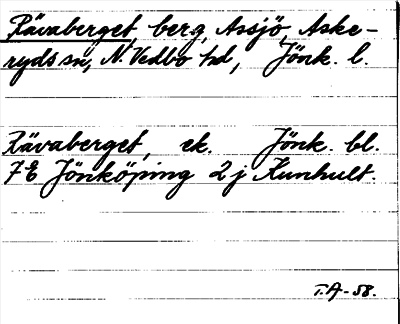 Rävaberget, berg, Assjö, Aske-
ryds sn, N. Vedbo hd, Jönk. l.
Rävaberget, ek. Jönk. bl.
7E Jönköping 2 j Kunhult.
T.A-58.